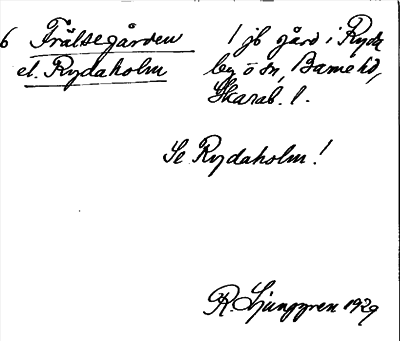 6 Frälsegården
el. Rydaholm
1 jb gård i Ryda
by o sn, Barne hd,
Skarab. l.
Se Rydaholm!
R. Ljunggren 1929